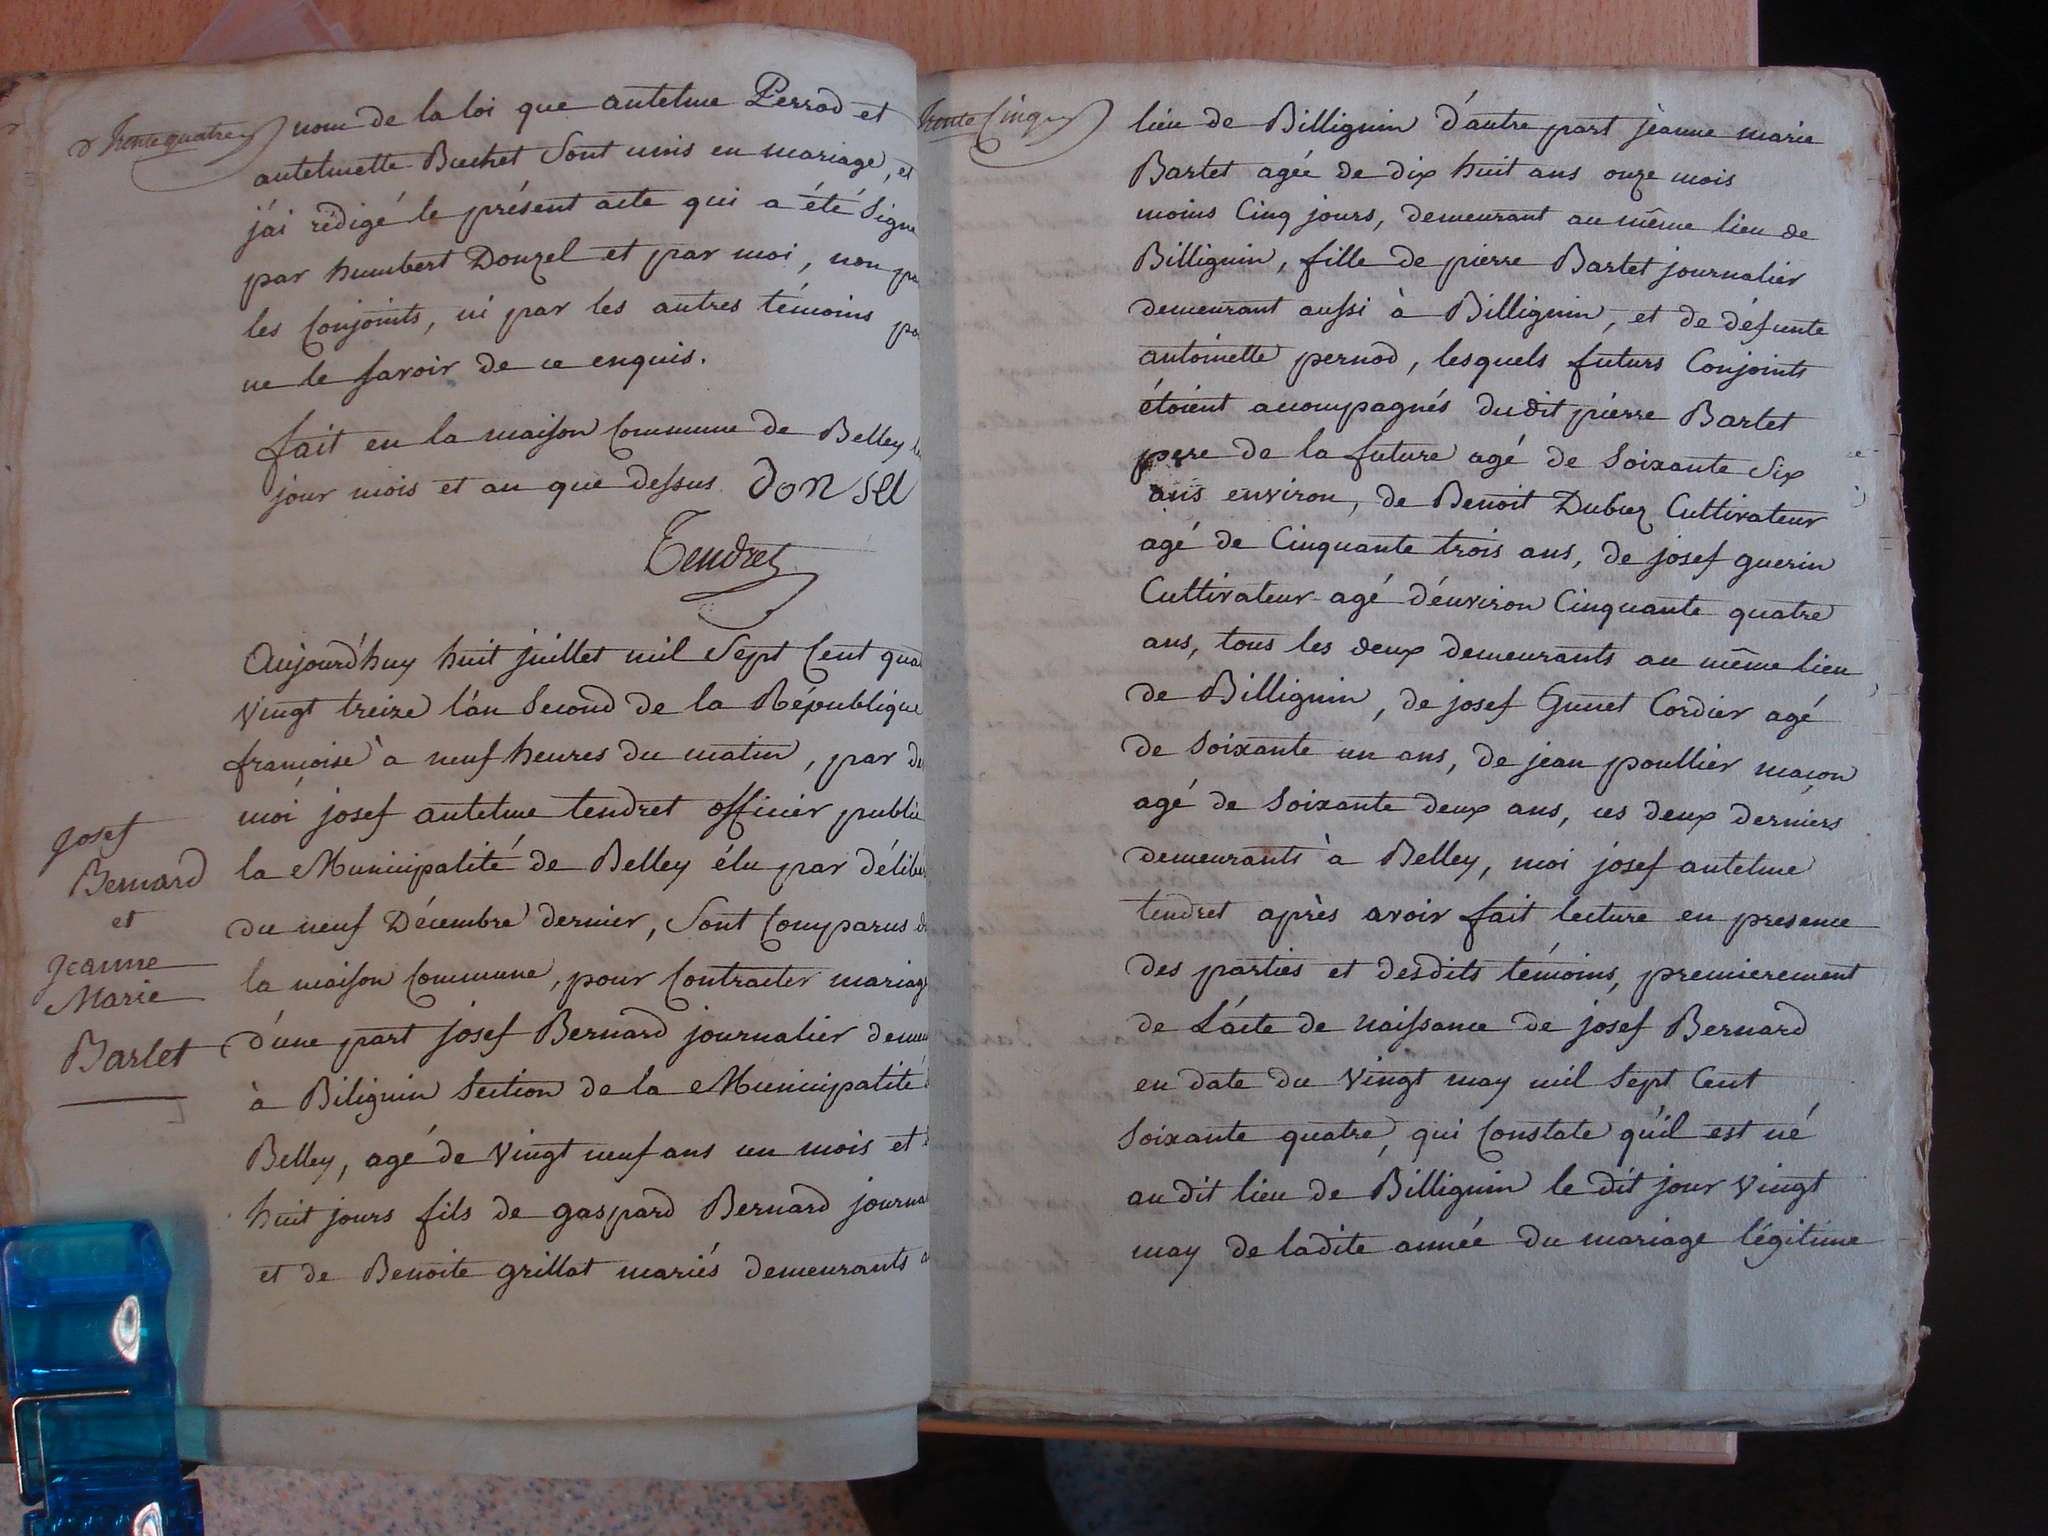 trente quatre
nom de la loi que antelme Perrod et
antelmette Buchet Sont unis en mariage, et
j'ai rédigé le présent acte qui a été Signé
par humbert Donzel et par moi, non
les Conjoints, ni par les autres témoins
ne le savoir de ce enquis.
fait en la maison Commune de Belley
jour mois et an que dessus. donsel
Tendret
Aujourd'huy huit juillet mil Sept Cent
Vingt treize l'an Second de la République
francoise à neuf heures du matin, par
moi josef antelme tendret officier public
la Municipalité de Belley élu par
du neuf Décembre dernier, Sont Comparus
la maison Commune, pour Contracter mariage
d'une part josef Bernard journalier
à Biliguin Section de la Municipalité
Belley, agé de Vingt neuf ans un mois et
huit jours fils de gaspard Bernard
et de Benoite grillat mariés demeurants
Josef
Bernard
et
Jeanne
Marie
Barlet
trente Cinq
lieu de Billignin d'autre part jèanne marie
Bartet agée de dix huit ans onze mois
moins Cinq jours, demeurant au même lieu de
Billignin, fille de pierre Bartet journalier
demeurant aussi à Billignin, et de défunte
antoinette pernod, lesquels futurs Conjoints
étoient accompagnés du dit pierre Bartet
pere de la future agé de Soixante Six
ans environ, de Benoit Dubuz Cultivateur
agé de Cinquante trois ans, de josef guerin
Cultivateur agé d'environ Cinquante quatre
ans, tous les deux demeurants au même lieu
de Billignin, de josef Cordier agé
de Soixante un ans, de jean poullier maçon
agé de Soixante deux ans, ces deux derniers
demeurants à Belley, moi josef antelme
tendret après avoir fait lecture en presence
des parties et desdits témoins, premierement
de L'acte de naissance de josef Bernard
en date du Vingt may mil Sept Cent
Soixante quatre, qui Constate qu'il est né
au dit lieu de Billignin le dit jour Vingt
may de ladite année du mariage légitime